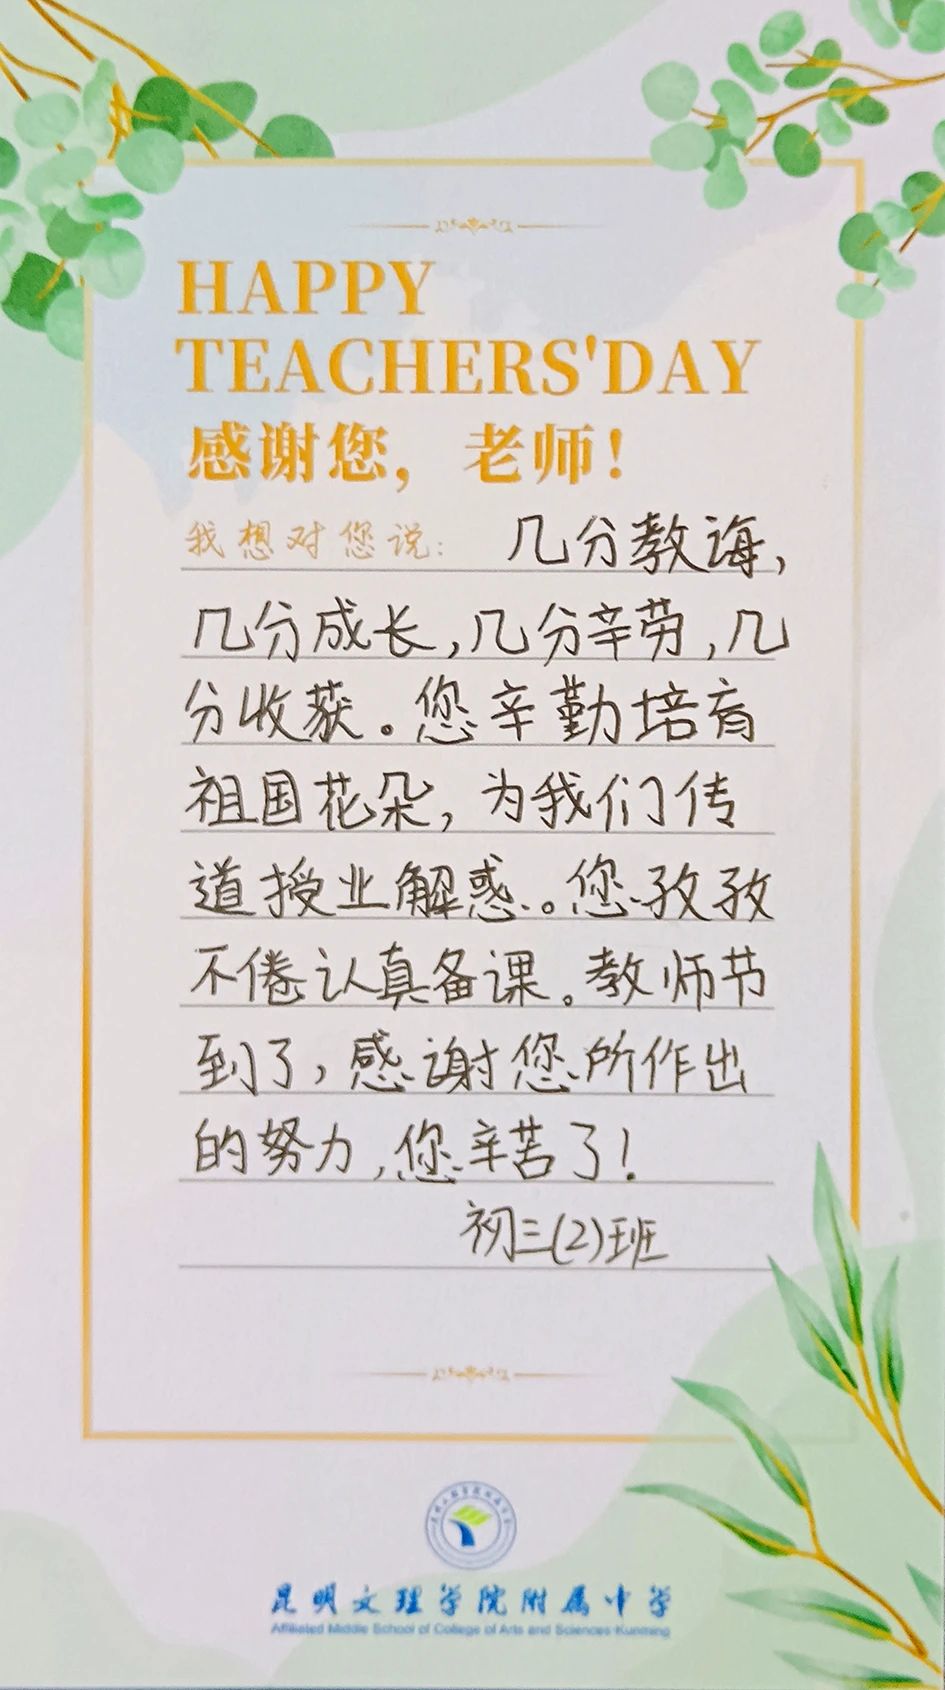 HAPPY
TEACHERS'DAY
感谢您，老师！
我想对您说：几分教诲，
几分成长，几分辛劳，几
分收获。您辛勤培育
祖国花朵，为我们传
道授业解惑。您孜孜
不倦认真备课。教师节
到了，感谢您所作出
的努力，您辛苦了！
初三(2)班
昆明文理学院附属中学
Affiliated Middle School of College of Arts and Sciences·Kunming